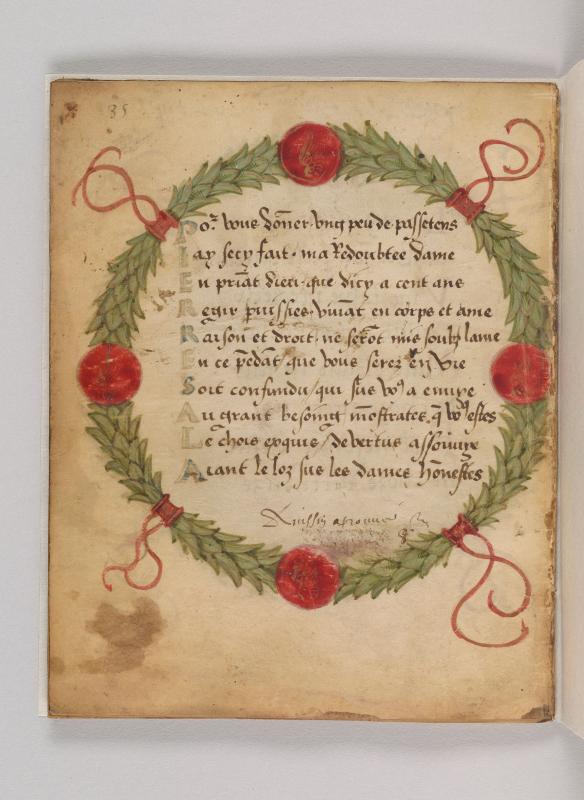 35
Poʳ vous dõner vng peu de passetens
Iay secy fait ma Redoubtee dame
En priãt dieu que dicy a cent ans
Regir puissies viuãt en corps et ame
Raison et droit ne serõt mis soubz lame
En ce pẽdãt que vous serez en vie
Soit confundu qui sus voꝰ a enuye
Au grant besoing mõstrates q̃ voꝰ estes
Le chois exquis de vertus assouuye
Aiant le loz sus les dames hõnestes